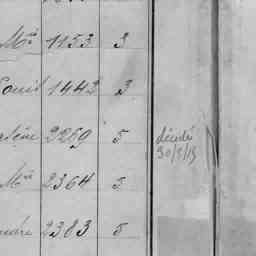 Mie 1153 3
Louis 1442 3
2269 5
décédé
30/5/15
Mie 2364 5
2383 5